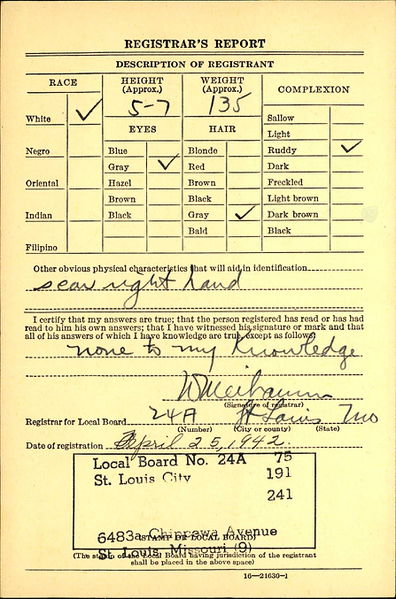 REGISTRAR'S REPORT
DESCRIPTION OF REGISTRANT
RACE
HEIGHT (Approx.)
WEIGHT (Approx.)
COMPLEXION
5-7
135
White ✓
Sallow
Light
EYES
HAIR
Negro
Blue
Blonde
Ruddy ✓
Gray ✓
Red
Dark
Oriental
Hazel
Brown
Freckled
Brown
Black
Light brown
Indian
Black
Gray ✓
Dark brown
Bald
Black
Filipino
Other obvious physical characteristics that will aid in identification
scar right hand
I certify that my answers are true; that the person registered has read or has had
read to him his own answers; that I have witnessed his signature or mark and that
all of his answers of which I have knowledge are true, except as follows:
none to my Knowledge
(Signature of registrar)
Registrar for Local Board 24A St Louis Mo
(Number) (City or county) (State)
Date of registration April 25, 1942.
Local Board No. 24A 75
St. Louis City 191
241
6483a Chippewa Avenue
(STAMP OF LOCAL BOARD)
St. Louis, Missouri (9)
(The stamp of the Local Board having jurisdiction of the registrant
shall be placed in the above space)
16—21630-1